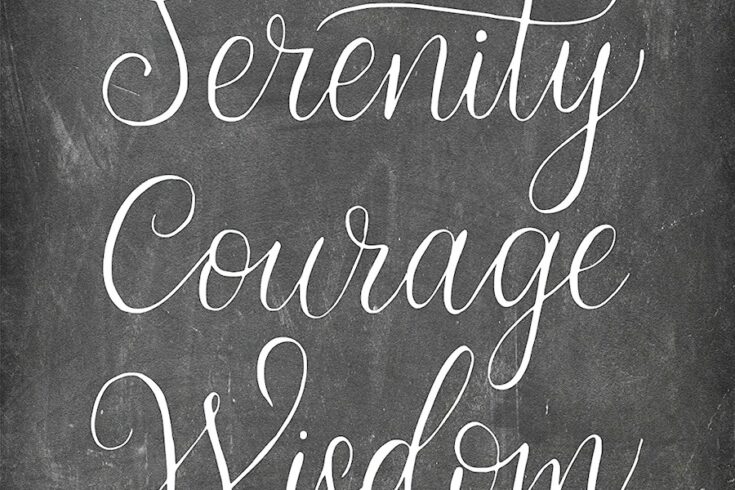 Serenity
Courage
Wisdom